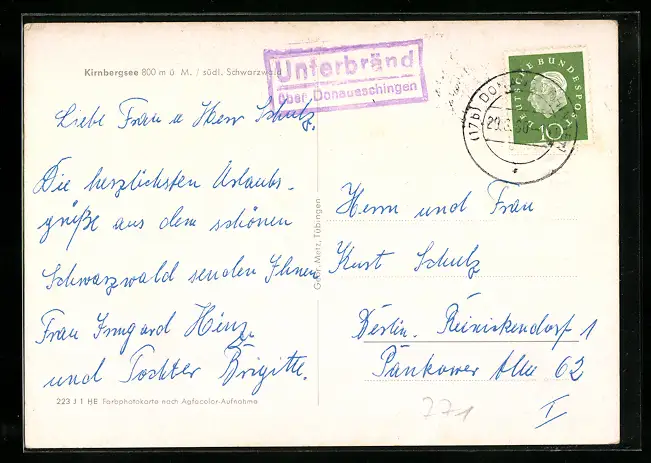 Kirnbergsee 800 m ü. M. / südl. Schwarzwald
Unterbränd
über Donaueschingen
DEUTSCHE BUNDESPOST
10
(17b) DONAU
29.8.60
Liebe Frau u Herr Schulz,
Die herzlichsten Urlaubs-
grüße aus dem schönen
Schwarzwald senden Ihnen
Frau Irmgard Hinz
und Tochter Brigitte.
Gebr. Metz, Tübingen
Herrn und Frau
Kurt Schulz
Berlin. Reinickendorf 1
Pankower Allee 62
223 J 1 HE Farbphotokarte nach Agfacolor-Aufnahme
771
I